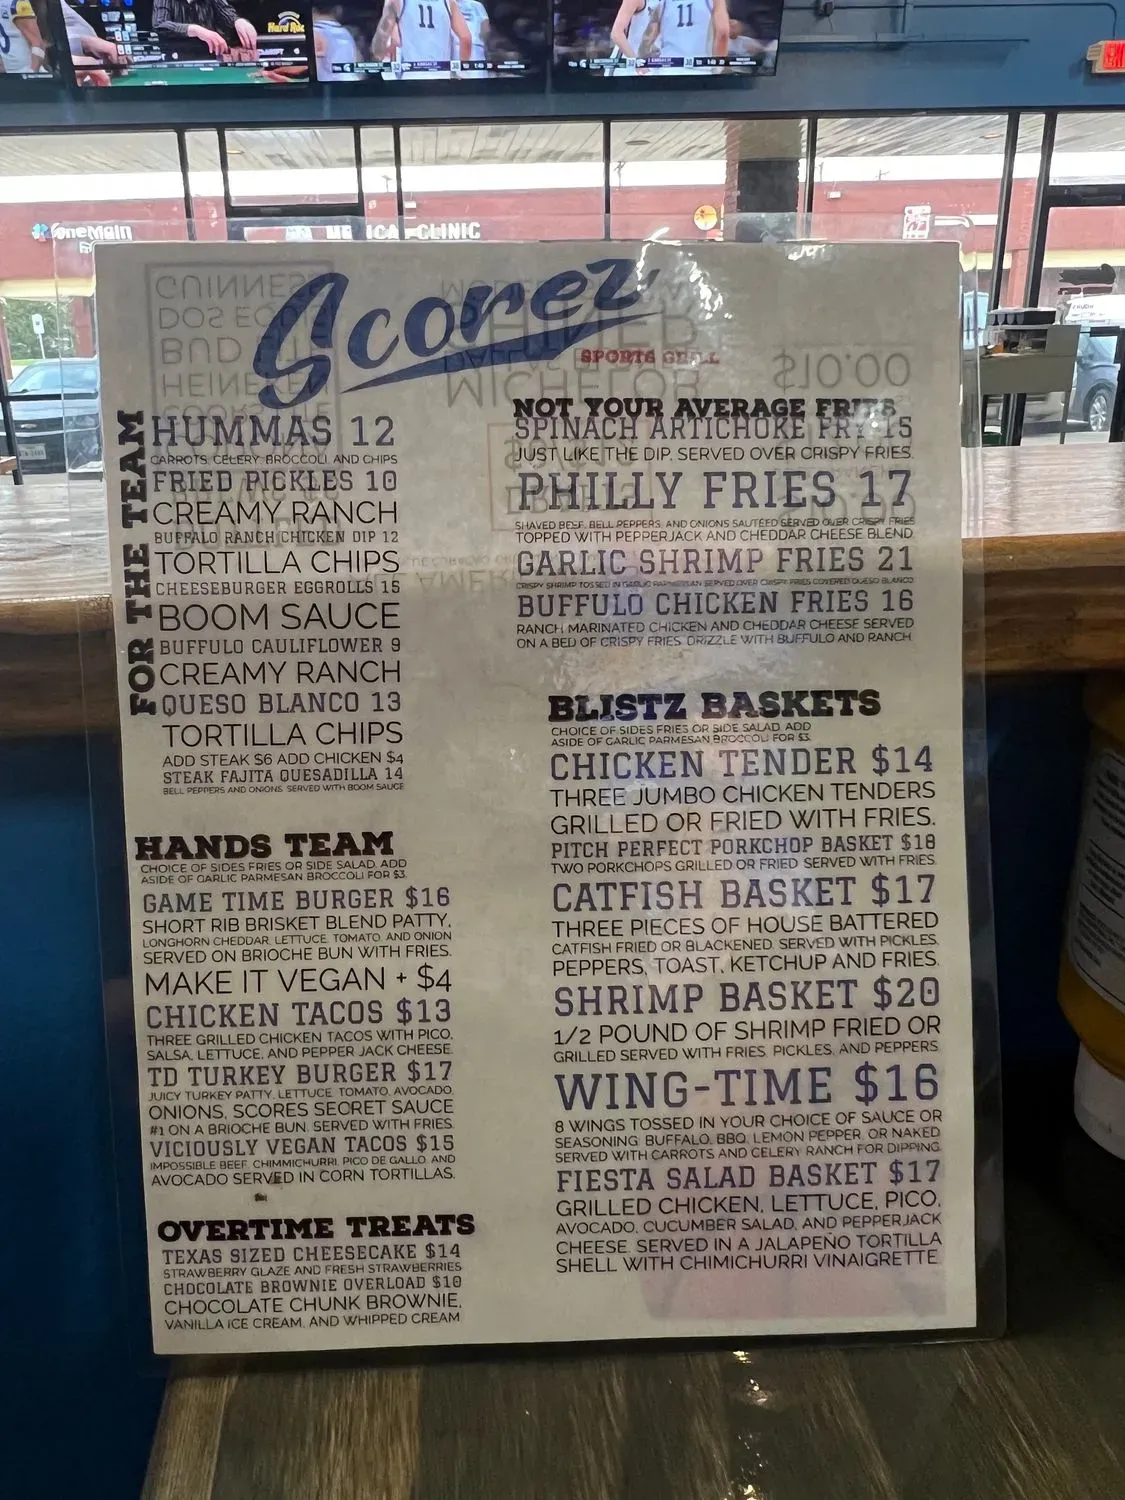 Hard Rock
11
11
OneMain
CLINIC
Scorez
SPORTS GRILL
FOR THE TEAM
HUMMAS 12
CARROTS, CELERY, BROCCOLI, AND CHIPS
FRIED PICKLES 10
CREAMY RANCH
BUFFALO RANCH CHICKEN DIP 12
TORTILLA CHIPS
CHEESEBURGER EGGROLLS 15
BOOM SAUCE
BUFFULO CAULIFLOWER 9
CREAMY RANCH
QUESO BLANCO 13
TORTILLA CHIPS
ADD STEAK $6 ADD CHICKEN $4
STEAK FAJITA QUESADILLA 14
BELL PEPPERS AND ONIONS SERVED WITH BOOM SAUCE
HANDS TEAM
CHOICE OF SIDES FRIES OR SIDE SALAD. ADD
ASIDE OF GARLIC PARMESAN BROCCOLI FOR $3.
GAME TIME BURGER $16
SHORT RIB BRISKET BLEND PATTY,
LONGHORN CHEDDAR, LETTUCE, TOMATO, AND ONION
SERVED ON BRIOCHE BUN WITH FRIES.
MAKE IT VEGAN + $4
CHICKEN TACOS $13
THREE GRILLED CHICKEN TACOS WITH PICO,
SALSA, LETTUCE, AND PEPPER JACK CHEESE.
TD TURKEY BURGER $17
JUICY TURKEY PATTY, LETTUCE, TOMATO, AVOCADO,
ONIONS, SCORES SECRET SAUCE
#1 ON A BRIOCHE BUN. SERVED WITH FRIES.
VICIOUSLY VEGAN TACOS $15
IMPOSSIBLE BEEF, CHIMMICHURRI, PICO DE GALLO, AND
AVOCADO SERVED IN CORN TORTILLAS.
OVERTIME TREATS
TEXAS SIZED CHEESECAKE $14
STRAWBERRY GLAZE AND FRESH STRAWBERRIES
CHOCOLATE BROWNIE OVERLOAD $10
CHOCOLATE CHUNK BROWNIE,
VANILLA ICE CREAM, AND WHIPPED CREAM
NOT YOUR AVERAGE FRIES
SPINACH ARTICHOKE FRY 15
JUST LIKE THE DIP, SERVED OVER CRISPY FRIES.
PHILLY FRIES 17
SHAVED BEEF, BELL PEPPERS, AND ONIONS SAUTÉED SERVED OVER CRISPY FRIES
TOPPED WITH PEPPERJACK AND CHEDDAR CHEESE BLEND.
GARLIC SHRIMP FRIES 21
CRISPY SHRIMP TOSSED IN GARLIC PARMESAN SERVED OVER CRISPY FRIES COVERED QUESO BLANCO
BUFFULO CHICKEN FRIES 16
RANCH MARINATED CHICKEN AND CHEDDAR CHEESE SERVED
ON A BED OF CRISPY FRIES. DRIZZLE WITH BUFFULO AND RANCH
BLISTZ BASKETS
CHOICE OF SIDES FRIES OR SIDE SALAD. ADD
ASIDE OF GARLIC PARMESAN BROCCOLI FOR $3.
CHICKEN TENDER $14
THREE JUMBO CHICKEN TENDERS
GRILLED OR FRIED WITH FRIES.
PITCH PERFECT PORKCHOP BASKET $18
TWO PORKCHOPS GRILLED OR FRIED SERVED WITH FRIES.
CATFISH BASKET $17
THREE PIECES OF HOUSE BATTERED
CATFISH FRIED OR BLACKENED. SERVED WITH PICKLES,
PEPPERS, TOAST, KETCHUP AND FRIES.
SHRIMP BASKET $20
1/2 POUND OF SHRIMP FRIED OR
GRILLED SERVED WITH FRIES, PICKLES, AND PEPPERS.
WING-TIME $16
8 WINGS TOSSED IN YOUR CHOICE OF SAUCE OR
SEASONING: BUFFALO, BBQ, LEMON PEPPER, OR NAKED
SERVED WITH CARROTS AND CELERY RANCH FOR DIPPING.
FIESTA SALAD BASKET $17
GRILLED CHICKEN, LETTUCE, PICO,
AVOCADO, CUCUMBER SALAD, AND PEPPERJACK
CHEESE. SERVED IN A JALAPEÑO TORTILLA
SHELL WITH CHIMICHURRI VINAIGRETTE.